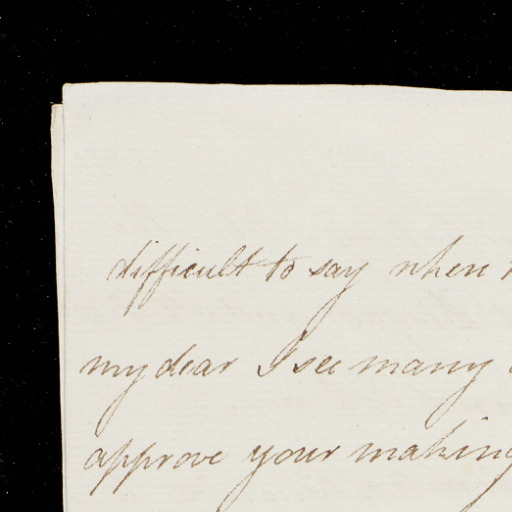 difficult to say when
my dear I see many
approve your making